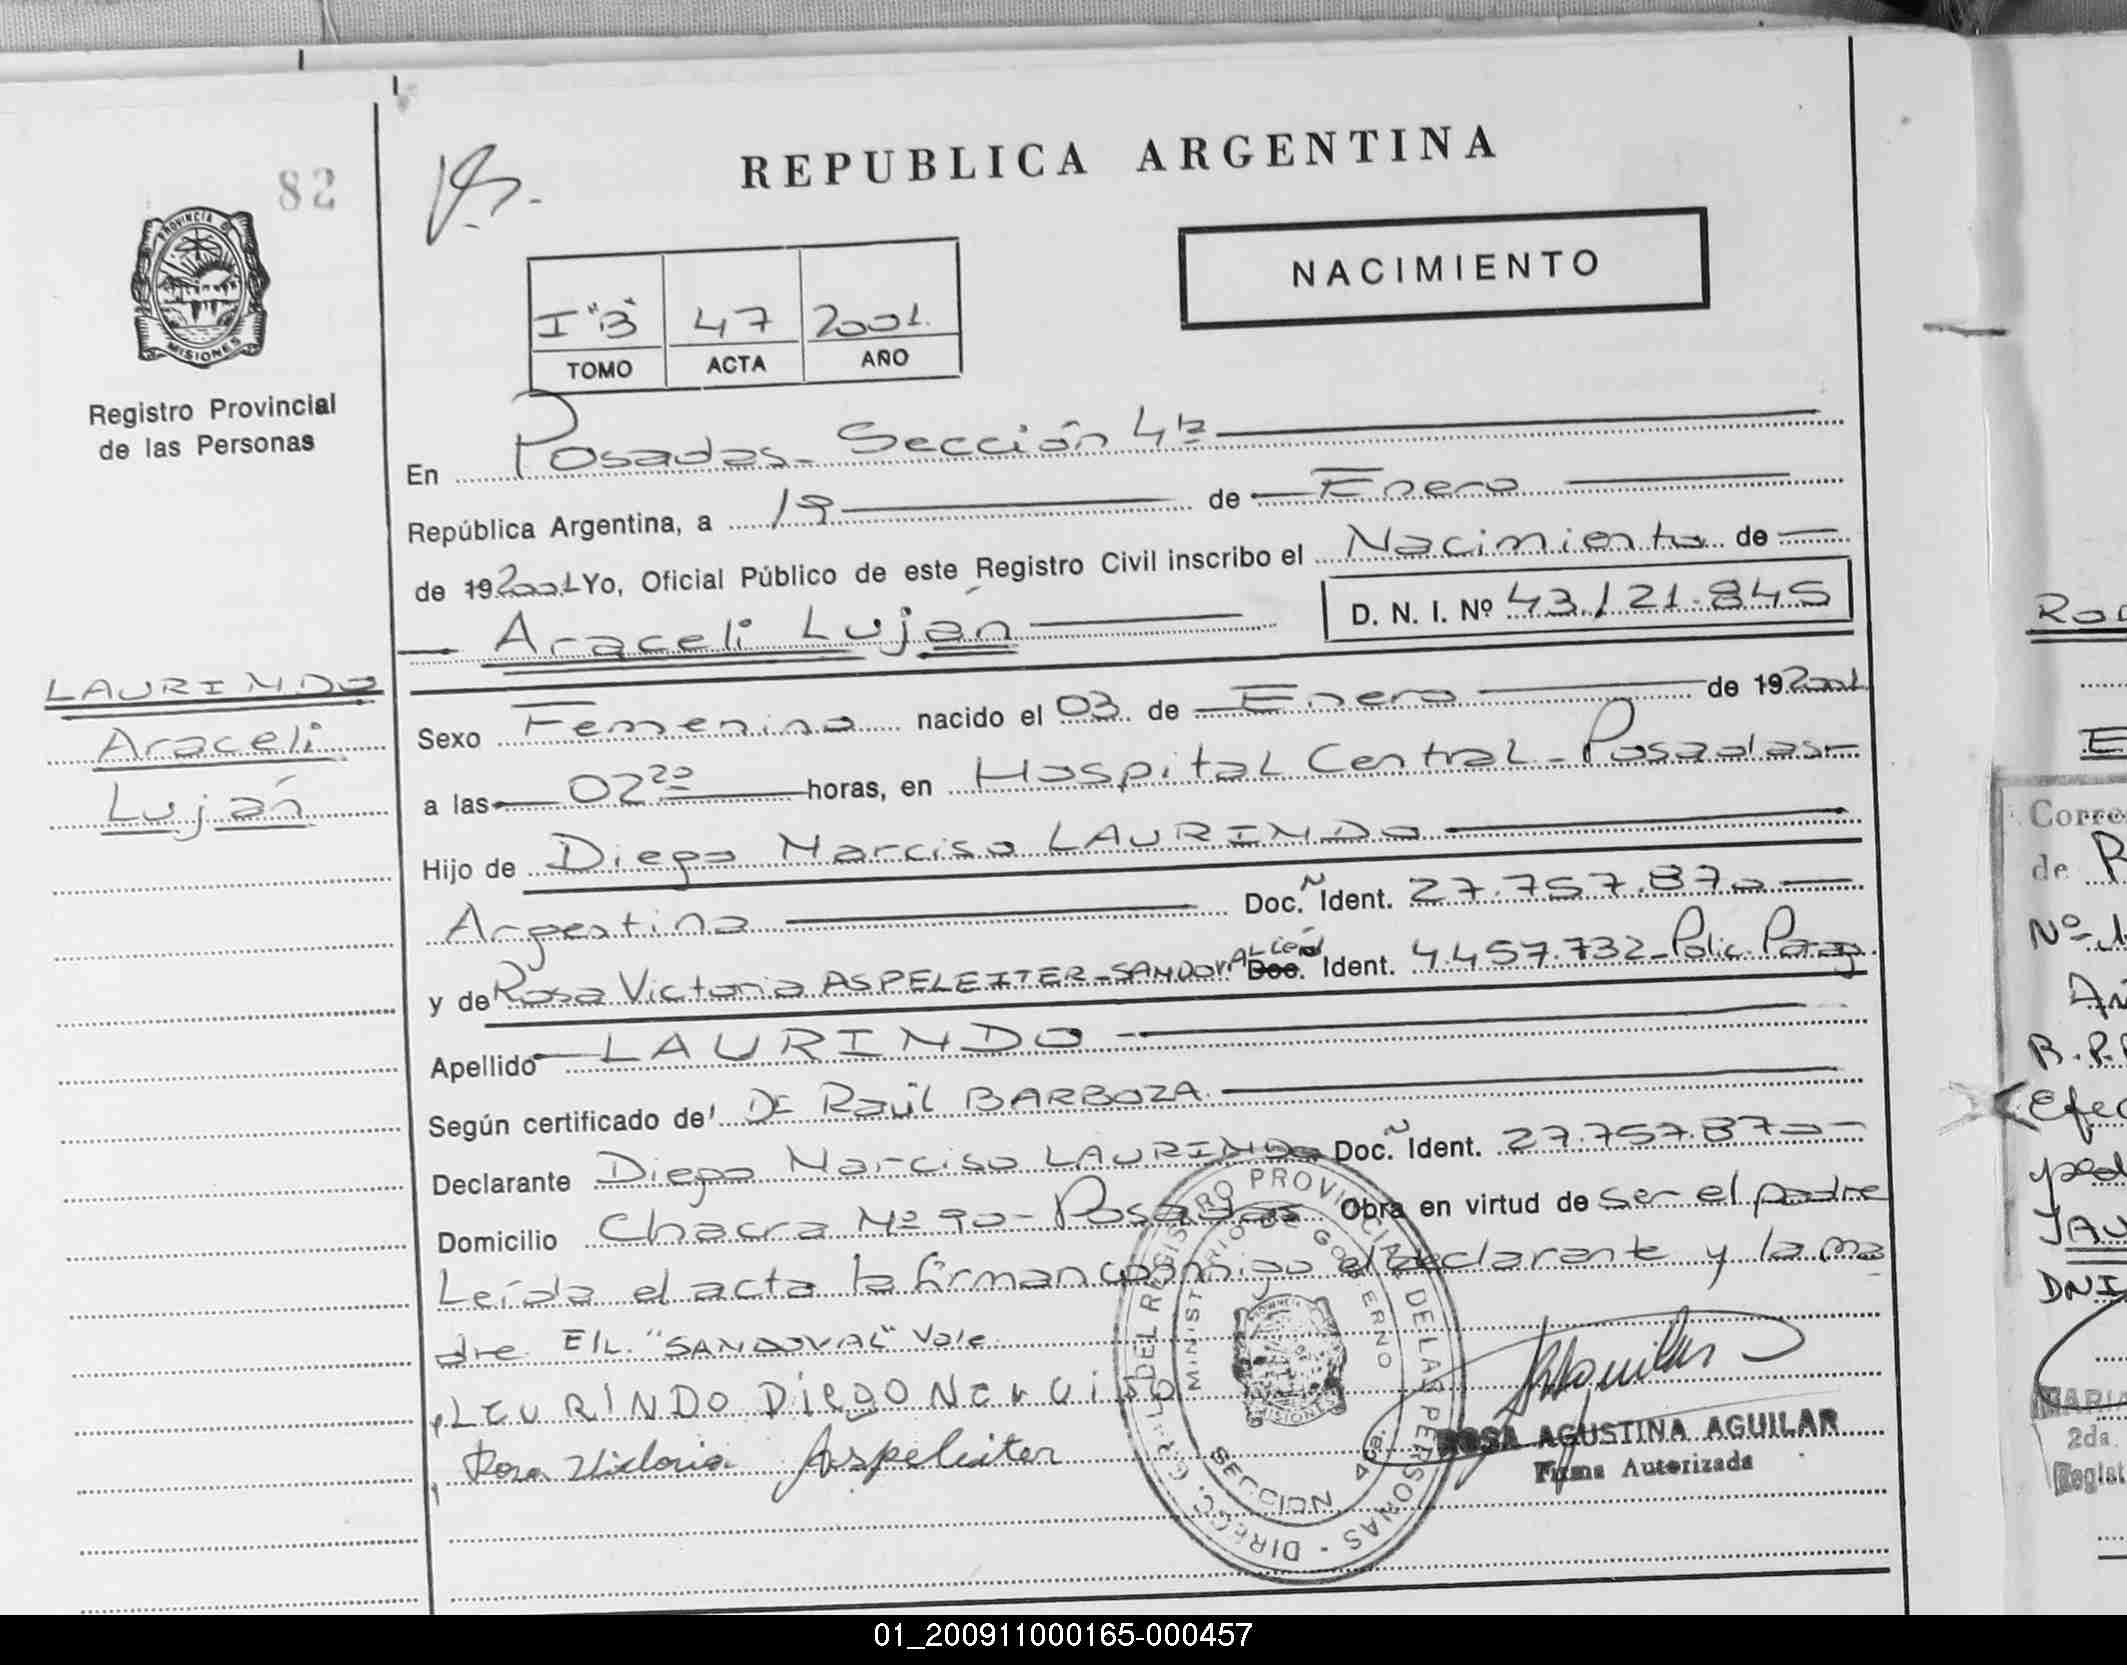 82
PROVINCIA DE
MISIONES
Registro Provincial
de las Personas
LAURINDO
Araceli
Luján
REPUBLICA ARGENTINA
NACIMIENTO
I "B" 47 2001.
TOMO ACTA AÑO
En Posadas - Sección 4ta
República Argentina, a 19 de Enero
de 192001 Yo, Oficial Público de este Registro Civil inscribo el Nacimiento de
Araceli Luján D. N. I. Nº 43.121.845
Sexo Femenino nacido el 03 de Enero de 192001
a las 02 20 horas, en Hospital Central - Posadas -
Hijo de Diego Narciso LAURINDO
Argentina Doc. N Ident. 27.757.870
y de Rosa Victoria ASPELEITER - SANDOVAL Céd Doc. Ident. 4.457.732 - Polic. Parag.
Apellido LAURINDO
Según certificado de Dr Raúl BARBOZA
Declarante Diego Narciso LAURINDO Doc. N Ident. 27.757.870 -
Domicilio Chacra Nº 90 - Posadas Obra en virtud de ser el padre
Leída el acta la firman conmigo el declarante y la ma
dre E/L. "SANDOVAL" Vale
LAURINDO DIEGO Narciso
Rosa Victoria Aspeleiter
DIRECC. GRAL. DEL REGISTRO PROVINCIAL DE LAS PERSONAS -
MINISTERIO DE GOBIERNO
SECCION 4ta.
MISIONES
ROSA AGUSTINA AGUILAR
Firma Autorizada
Corre
de
Nº
B.P.
Efec
DNI
MARIA
2da.
Regist
01_200911000165-000457